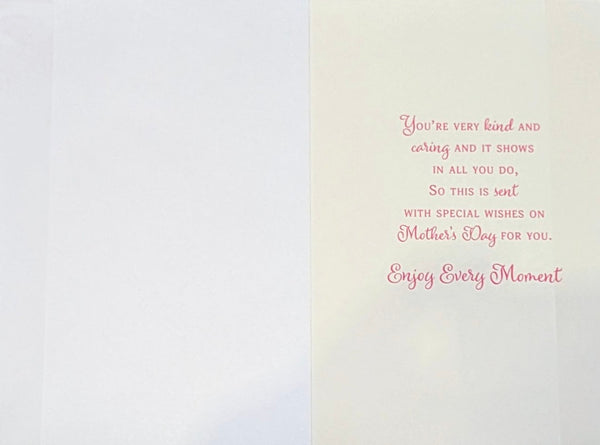 You're very kind and
caring and it shows
in all you do,
So this is sent
with special wishes on
Mother's Day for you.
Enjoy Every Moment